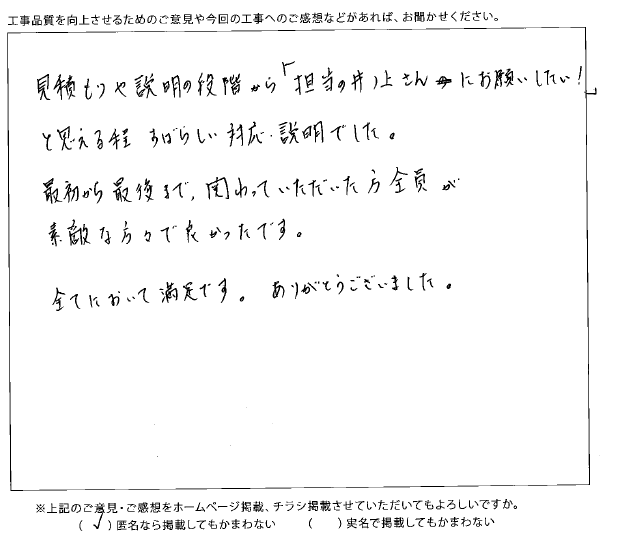 工事品質を向上させるためのご意見や今回の工事へのご感想などがあれば、お聞かせください。
見積もりや説明の段階から「担当の井ノ上さんにお願いしたい!」
と思える程 すばらしい対応・説明でした。
最初から最後まで、関わっていただいた方全員が
素敵な方々で良かったです。
全てにおいて満足です。 ありがとうございました。
※上記のご意見・ご感想をホームページ掲載、チラシ掲載させていただいてもよろしいですか。
(✓)匿名なら掲載してもかまわない ( )実名で掲載してもかまわない